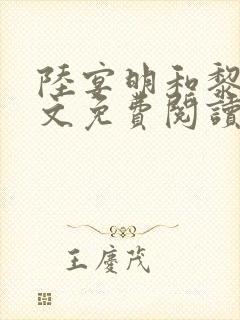 陸宴明和黎
文免費閱讀
王慶茂